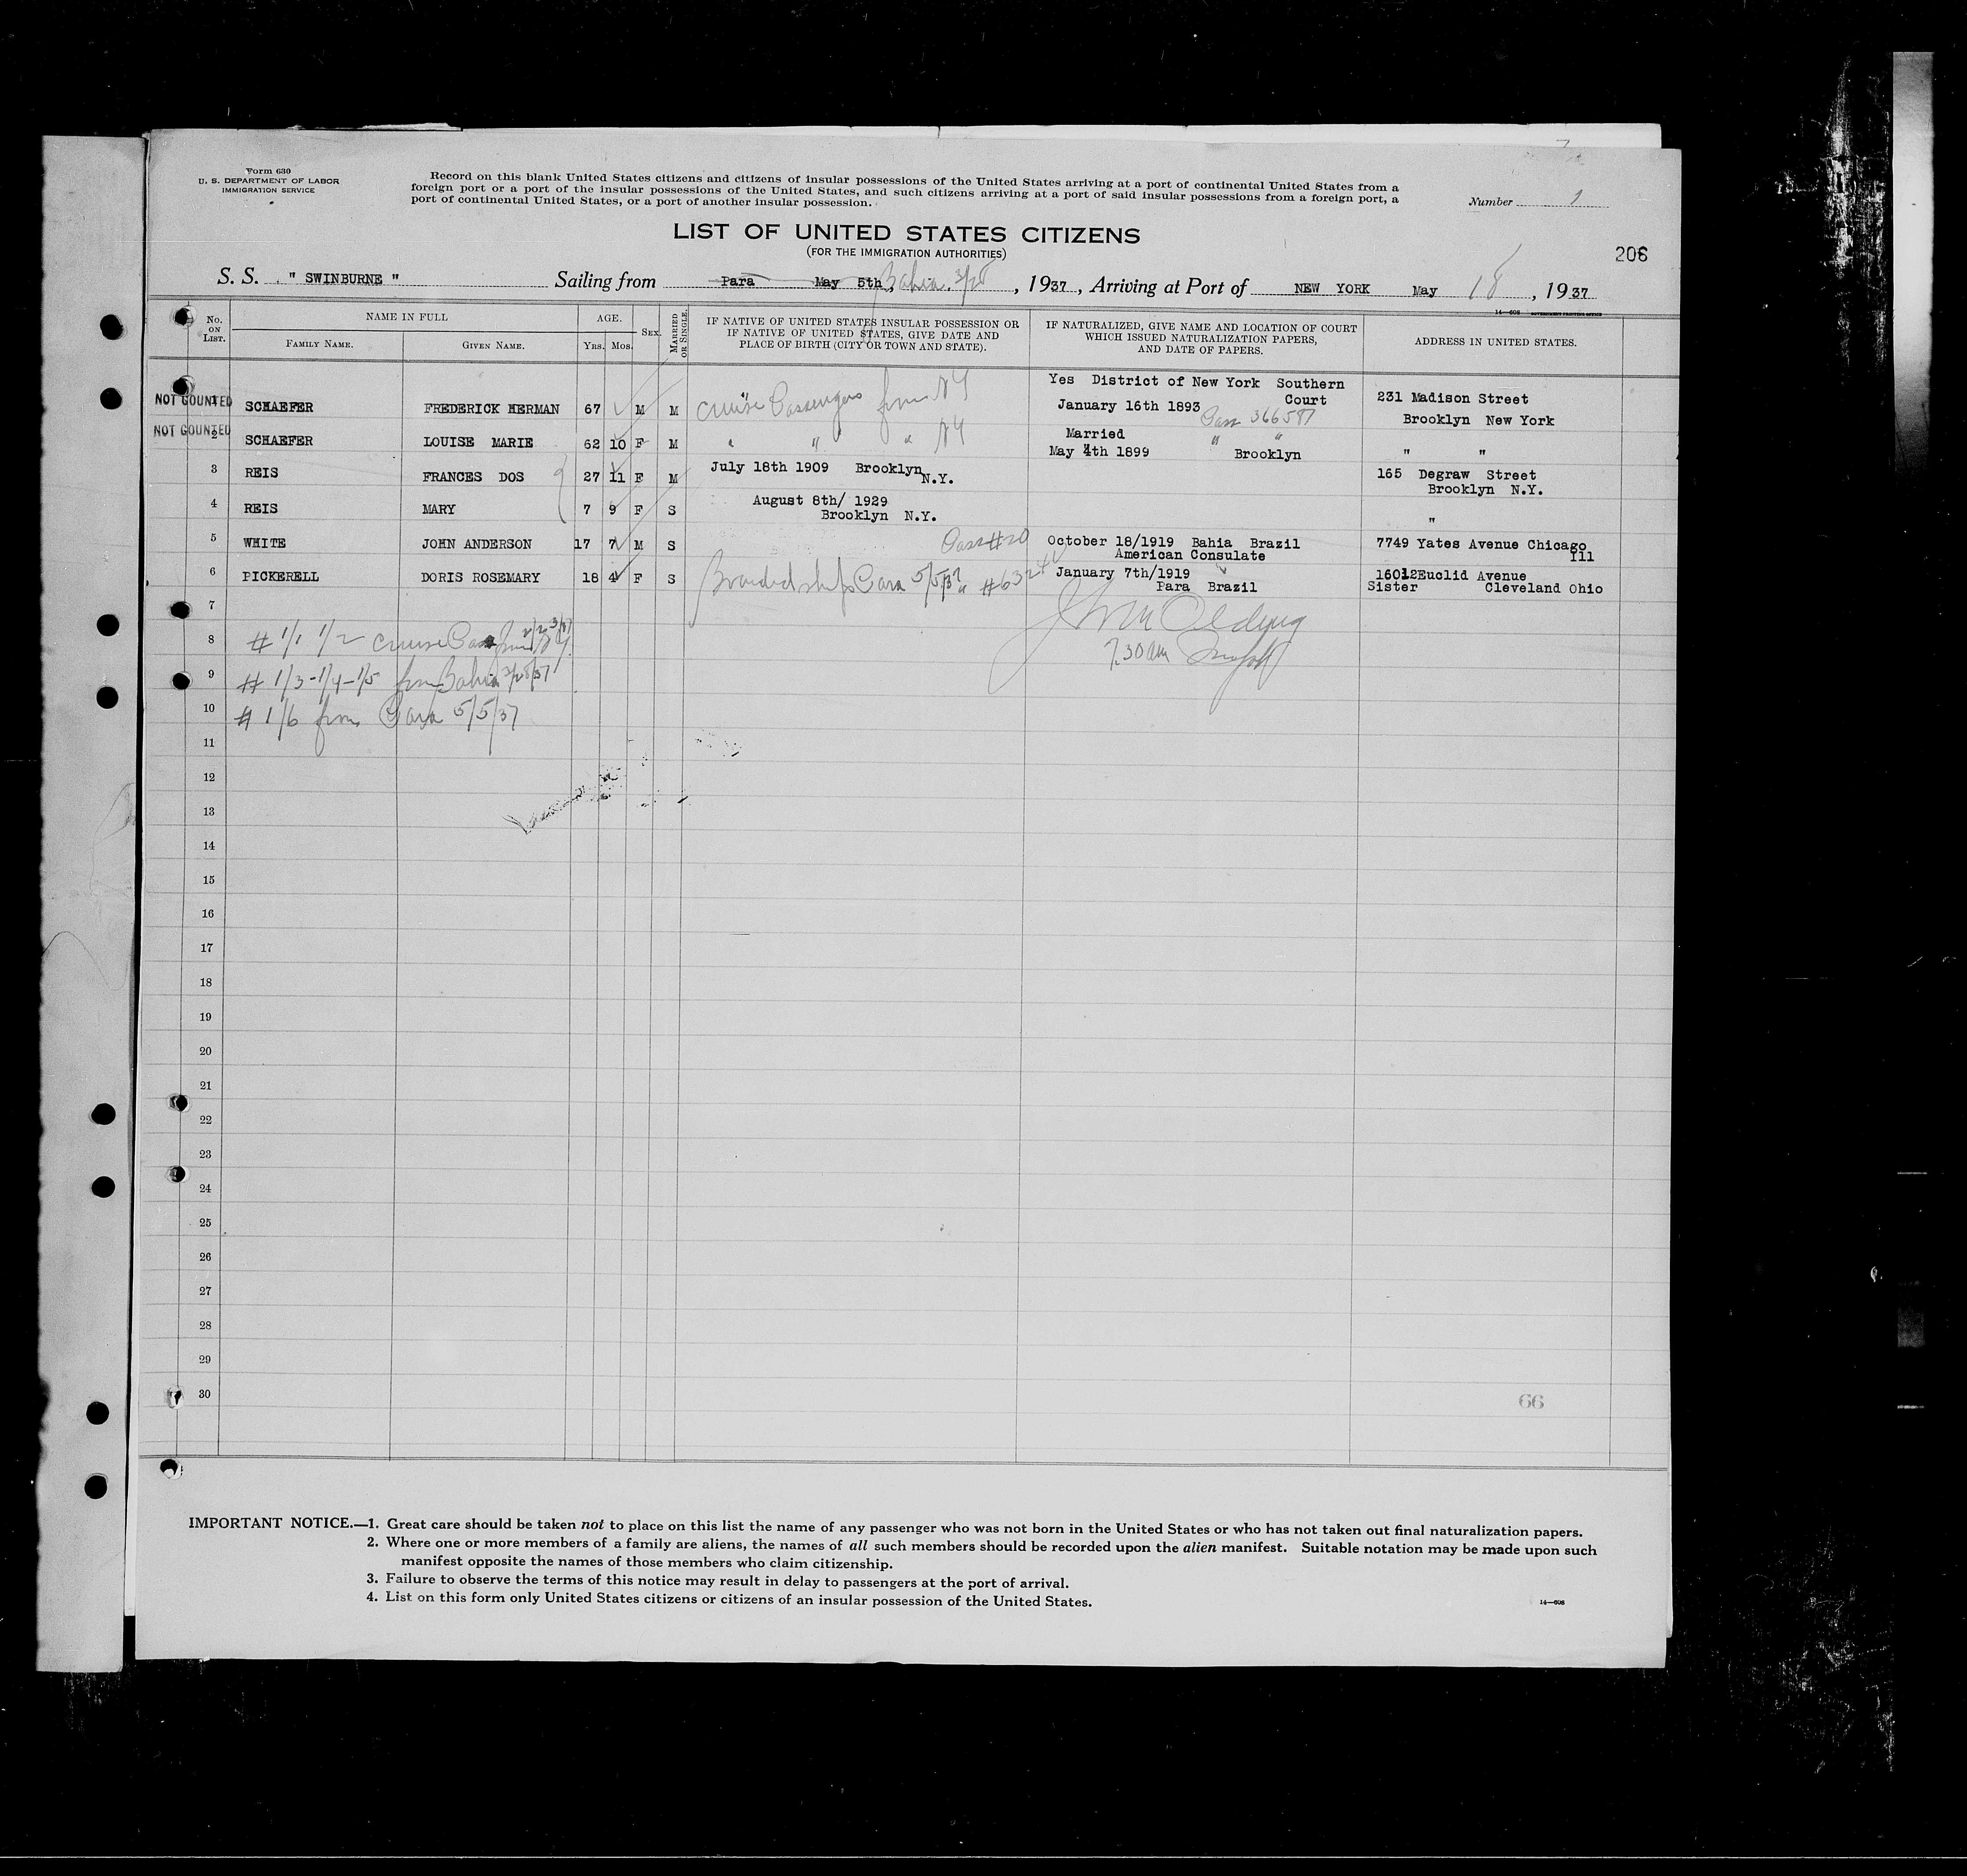 Form 630
U. S. DEPARTMENT OF LABOR
IMMIGRATION SERVICE
Record on this blank United States citizens and citizens of insular possessions of the United States arriving at a port of continental United States from a
foreign port or a port of the insular possessions of the United States, and such citizens arriving at a port of said insular possessions from a foreign port, a
port of continental United States, or a port of another insular possession.
Number 1
LIST OF UNITED STATES CITIZENS
(FOR THE IMMIGRATION AUTHORITIES)
206
S. S. " SWINBURNE " Sailing from Para May 5th, Bahia 3/28, 1937, Arriving at Port of NEW YORK May 18, 1937
14—608 GOVERNMENT PRINTING OFFICE
No. ON LIST.
NAME IN FULL
FAMILY NAME.
GIVEN NAME.
AGE.
YRS. MOS.
SEX.
MARRIED OR SINGLE.
IF NATIVE OF UNITED STATES INSULAR POSSESSION OR
IF NATIVE OF UNITED STATES, GIVE DATE AND
PLACE OF BIRTH (CITY OR TOWN AND STATE).
IF NATURALIZED, GIVE NAME AND LOCATION OF COURT
WHICH ISSUED NATURALIZATION PAPERS,
AND DATE OF PAPERS.
ADDRESS IN UNITED STATES.
Yes District of New York Southern
Court
NOT COUNTED 1 SCHAEFER FREDERICK HERMAN 67 M M Cruise Passengers from NY January 16th 1893 231 Madison Street
Pass 366587 Brooklyn New York
NOT COUNTED 2 SCHAEFER LOUISE MARIE 62 10 F M " " " NY Married " "
May 4th 1899 Brooklyn " "
3 REIS FRANCES DOS 27 11 F M July 18th 1909 Brooklyn N.Y. 165 Degraw Street
Brooklyn N.Y.
4 REIS MARY 7 9 F S August 8th/ 1929
Brooklyn N.Y. "
5 WHITE JOHN ANDERSON 17 7 M S Pass #20 October 18/1919 Bahia Brazil 7749 Yates Avenue Chicago
American Consulate Ill
6 PICKERELL DORIS ROSEMARY 18 4 F S Boarded ship Para 5/5/37 January 7th/1919 16012 Euclid Avenue
Para Brazil Sister Cleveland Ohio
7
7.30 am
8 # 1/1 1/2 cruise Pass from NY
9 # 1/3-1/4-1/5 from Bahia 3/28/37
10 # 1/6 from Para 5/5/37
11
12
13
14
15
16
17
18
19
20
21
22
23
24
25
26
27
28
29
30
66
IMPORTANT NOTICE.—1. Great care should be taken not to place on this list the name of any passenger who was not born in the United States or who has not taken out final naturalization papers.
2. Where one or more members of a family are aliens, the names of all such members should be recorded upon the alien manifest. Suitable notation may be made upon such
manifest opposite the names of those members who claim citizenship.
3. Failure to observe the terms of this notice may result in delay to passengers at the port of arrival.
4. List on this form only United States citizens or citizens of an insular possession of the United States.
14—608